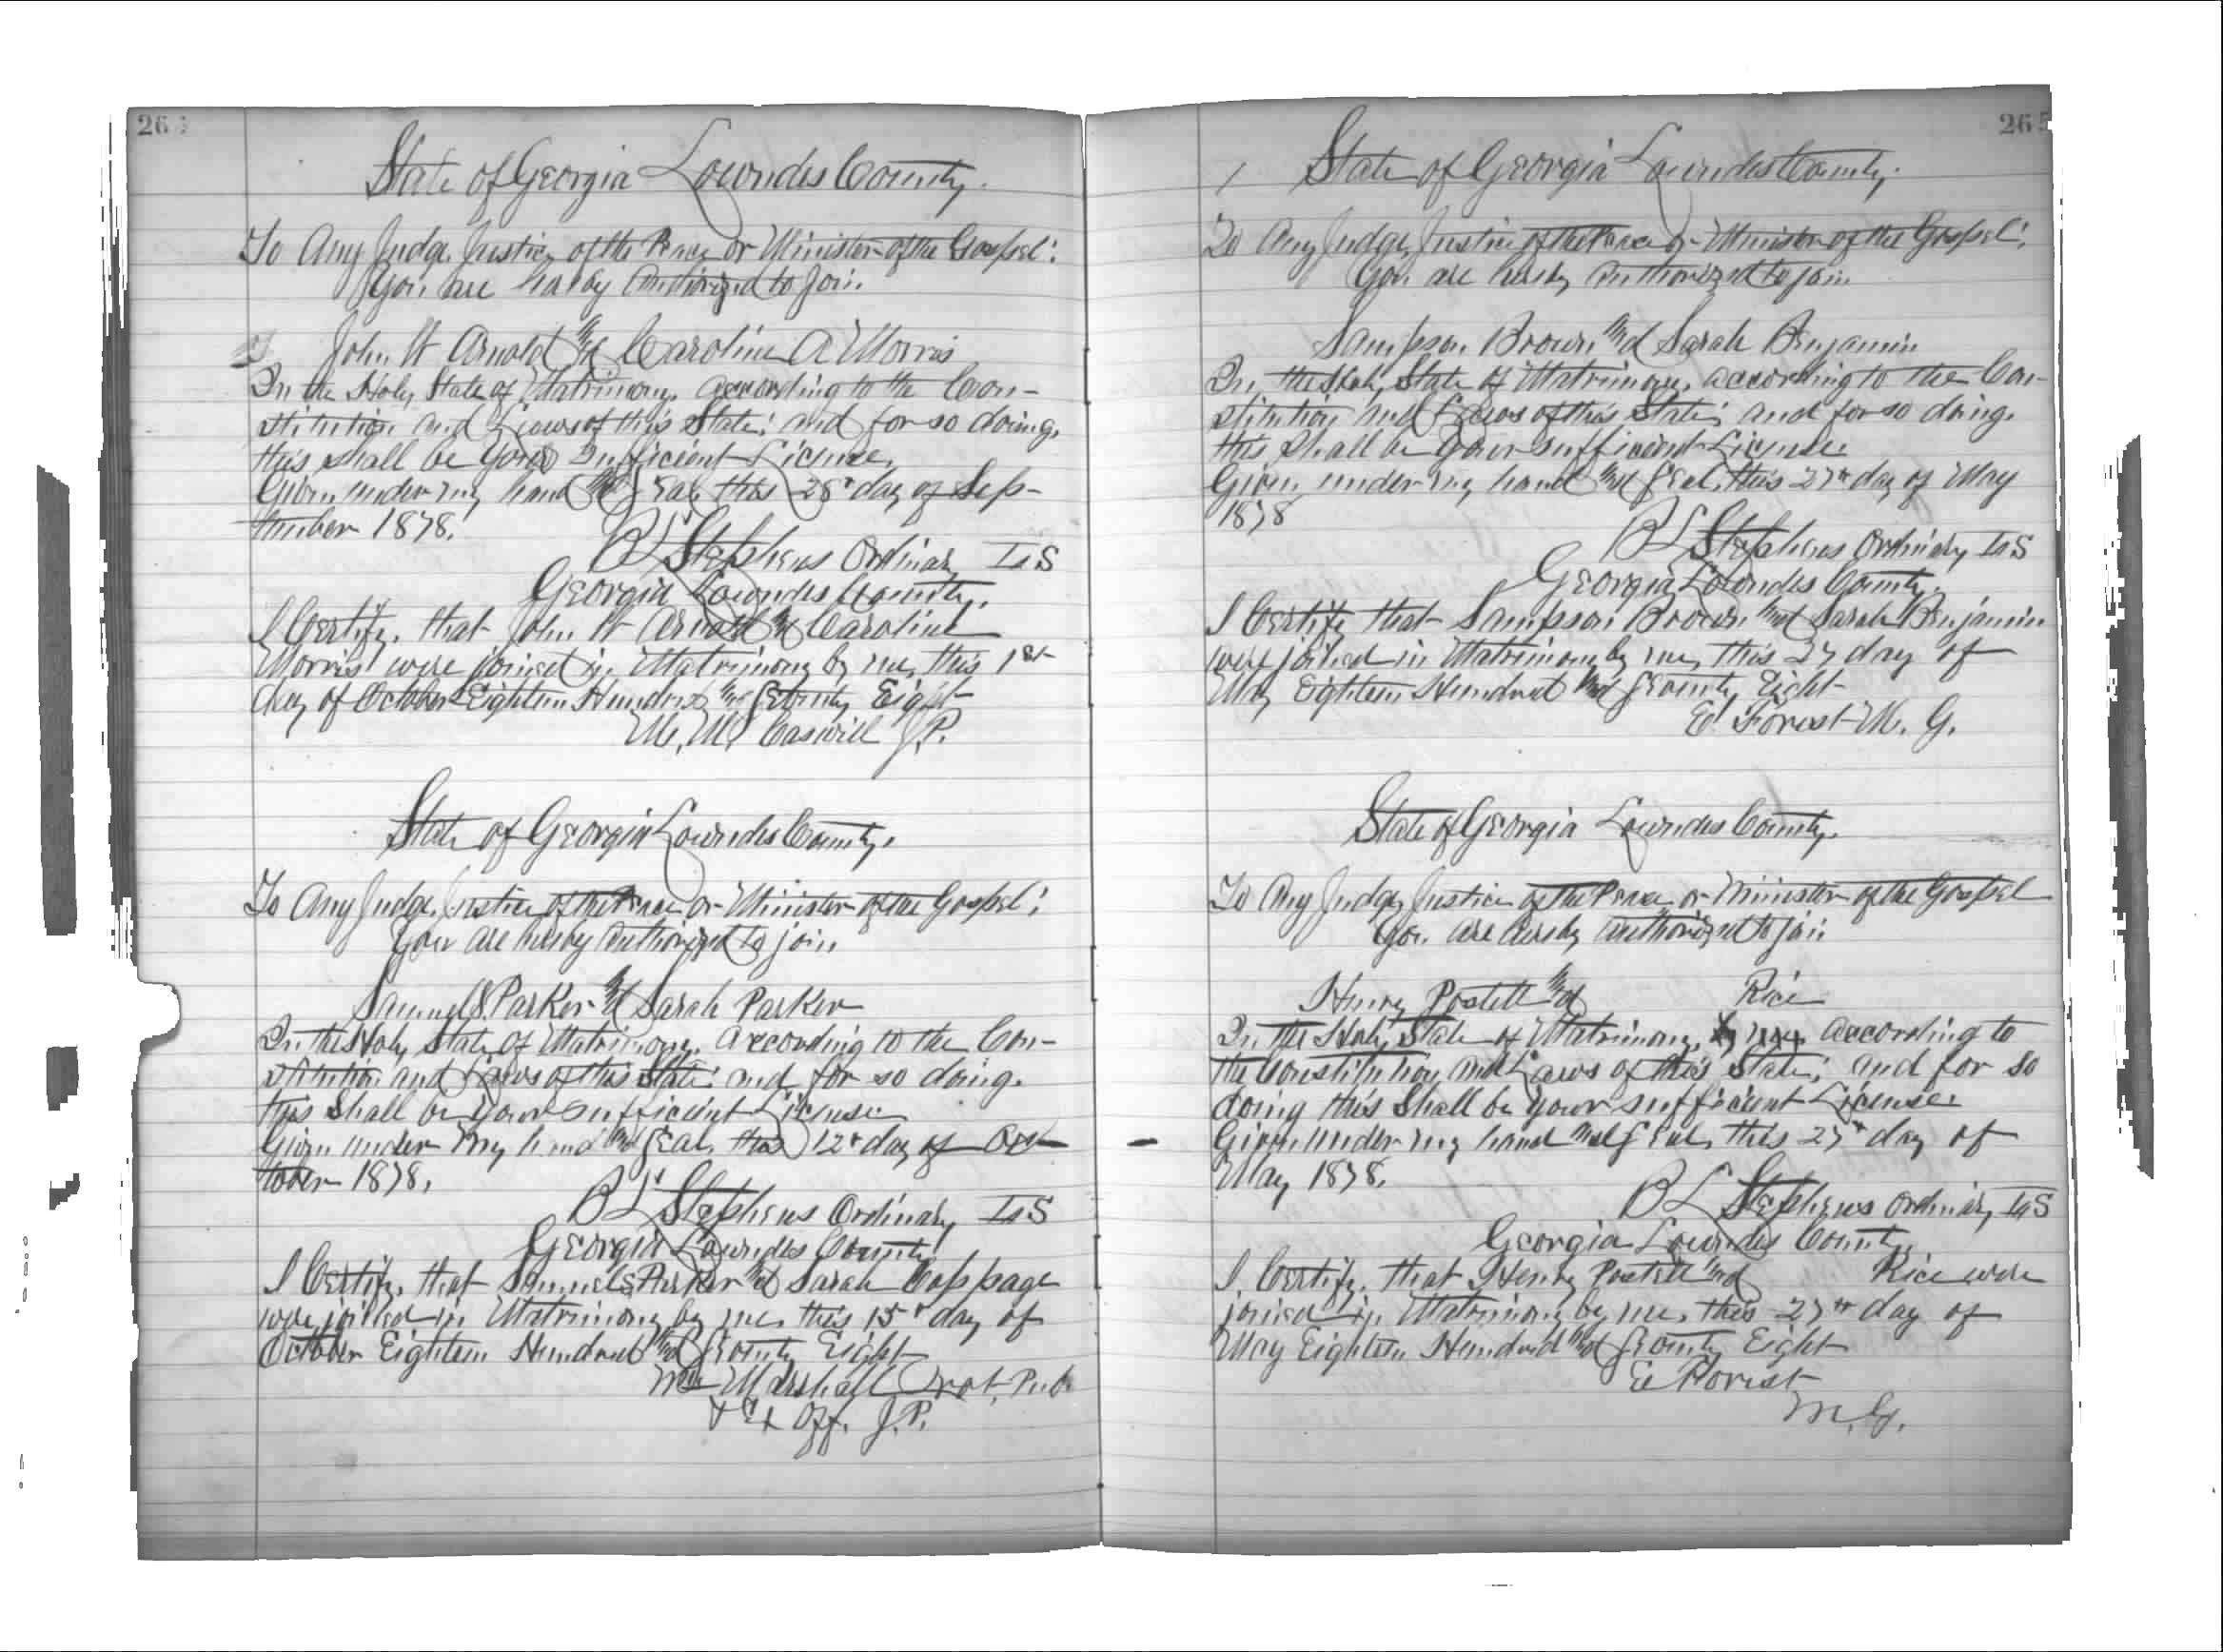 264
State of Georgia Lowndes County.
To Any Judge, Justice of the Peace or Minister of the Gospel:
You are hereby Authorized to Join
John W Arnold and Caroline A Morris
In the Holy State of Matrimony, according to the Con-
stitution and Laws of this State; and for so doing,
this shall be your Sufficient License.
Given under my hand and Seal, this 28" day of Sep-
tember 1878.
B L Stephens Ordinary L.S
Georgia Lowndes County.
I Certify, that John W Arnold and Caroline
Morris were joined in Matrimony by me, this 1st
day of October Eighteen Hundred and Seventy Eight
M. J.P.
State of Georgia Lowndes County.
To Any Judge, Justice of the Peace or Minister of the Gospel:
You are hereby authorized to join
Samuel S. Parker and Sarah Parker
In the Holy State of Matrimony, according to the Con-
stitution and Laws of this State; and for so doing.
this Shall be your sufficient License
Given under my hand and Seal, this 12" day of Oc-
tober 1878.
B L Stephens Ordinary L.S
Georgia Lowndes County
I Certify, that Samuel S Parker and Sarah Coppage
were joined in Matrimony by me, this 15" day of
October Eighteen Hundred and Seventy Eight
Marshall Not. Pub
& Ex Off. J.P.
265
State of Georgia Lowndes County.
To Any Judge, Justice of the Peace or Minister of the Gospel:
You are hereby authorized to join
Sampson Brown and Sarah Benjamin
In the Holy State of Matrimony, according to the Con-
stitution and Laws of this State; and for so doing.
this Shall be your sufficient License.
Given under my hand and Seal, this 27th day of May
1878
B L Stephens Ordinary L.S
Georgia Lowndes County.
I Certify that Sampson Brown and Sarah Benjamin
were joined in Matrimony by me, this 27 day of
May Eighteen Hundred and Seventy Eight
E. Forest M. G.
State of Georgia Lowndes County.
To Any Judge, Justice of the Peace or Minister of the Gospel
You are hereby authorized to join
Henry Postell and Rice
In the Holy State of Matrimony, according to
the Constitution and Laws of this State; and for so
doing this Shall be your sufficient License.
Given under my hand and Seal, this 27" day of
May 1878.
B L Stephens Ordinary L.S
Georgia Lowndes County
I Certify, that Henry Postell and Rice were
joined in Matrimony by me, this 27th day of
May Eighteen Hundred and Seventy Eight
E Forest
M.G.